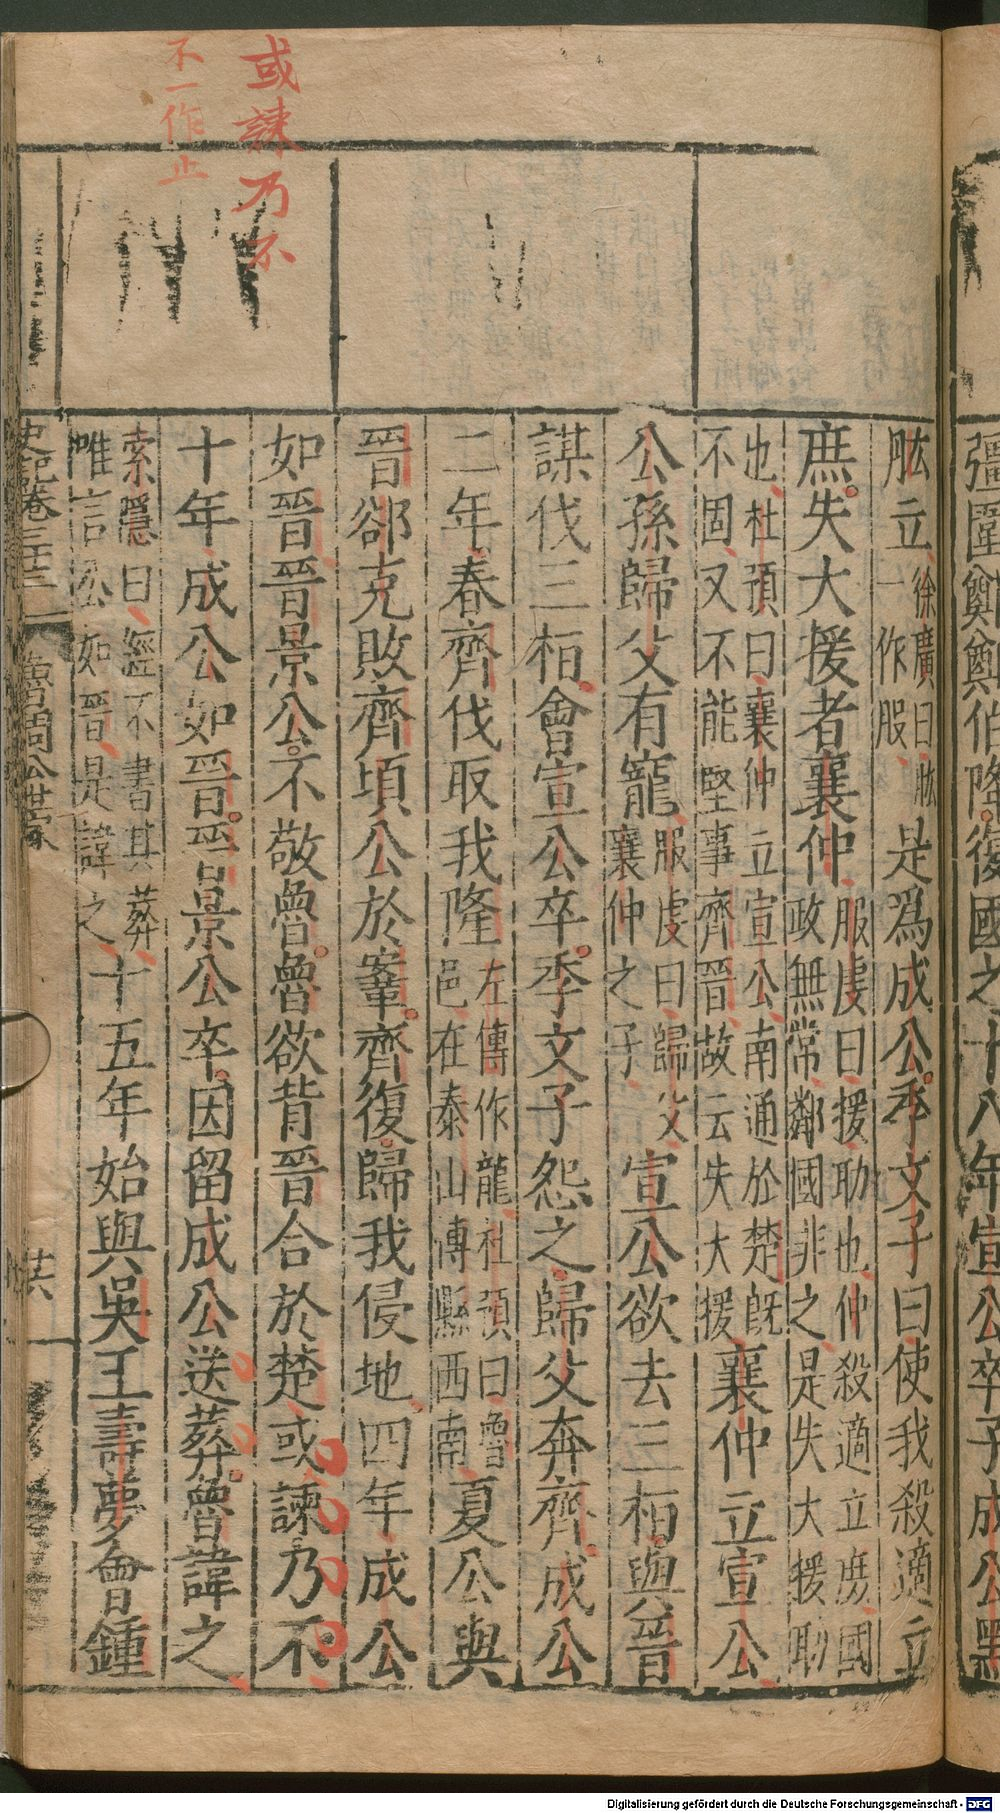 彊圍鄭鄭伯降復國之十八年宣公卒子成公黑
肱立徐廣曰肱一作服是爲成公季文子曰使我殺適立
庶失大援者襄仲服虔曰援助也仲殺適立庶國政無常鄰國非之是失大援助
也杜預曰襄仲立宣公南通於楚旣不固又不能堅事齊晉故云失大援襄仲立宣公
公孫歸父有寵服虔曰歸父襄仲之子宣公欲去三桓與晉
謀伐三桓會宣公卒季文子怨之歸父奔齊成公
二年春齊伐取我隆左傳作龍杜預曰魯邑在泰山博縣西南夏公與
晉郤克敗齊頃公於鞌齊復歸我侵地四年成公
如晉晉景公不敬魯魯欲背晉合於楚或諫乃不
十年成公如晉晉景公卒因留成公送葬魯諱之
索隱曰經不書其葬唯言公如晉是諱之十五年始與吳王壽夢會鍾
史記卷三十三
魯周公世家
或諫乃不
不一作止
Digitalisierung gefördert durch die Deutsche Forschungsgemeinschaft - DFG